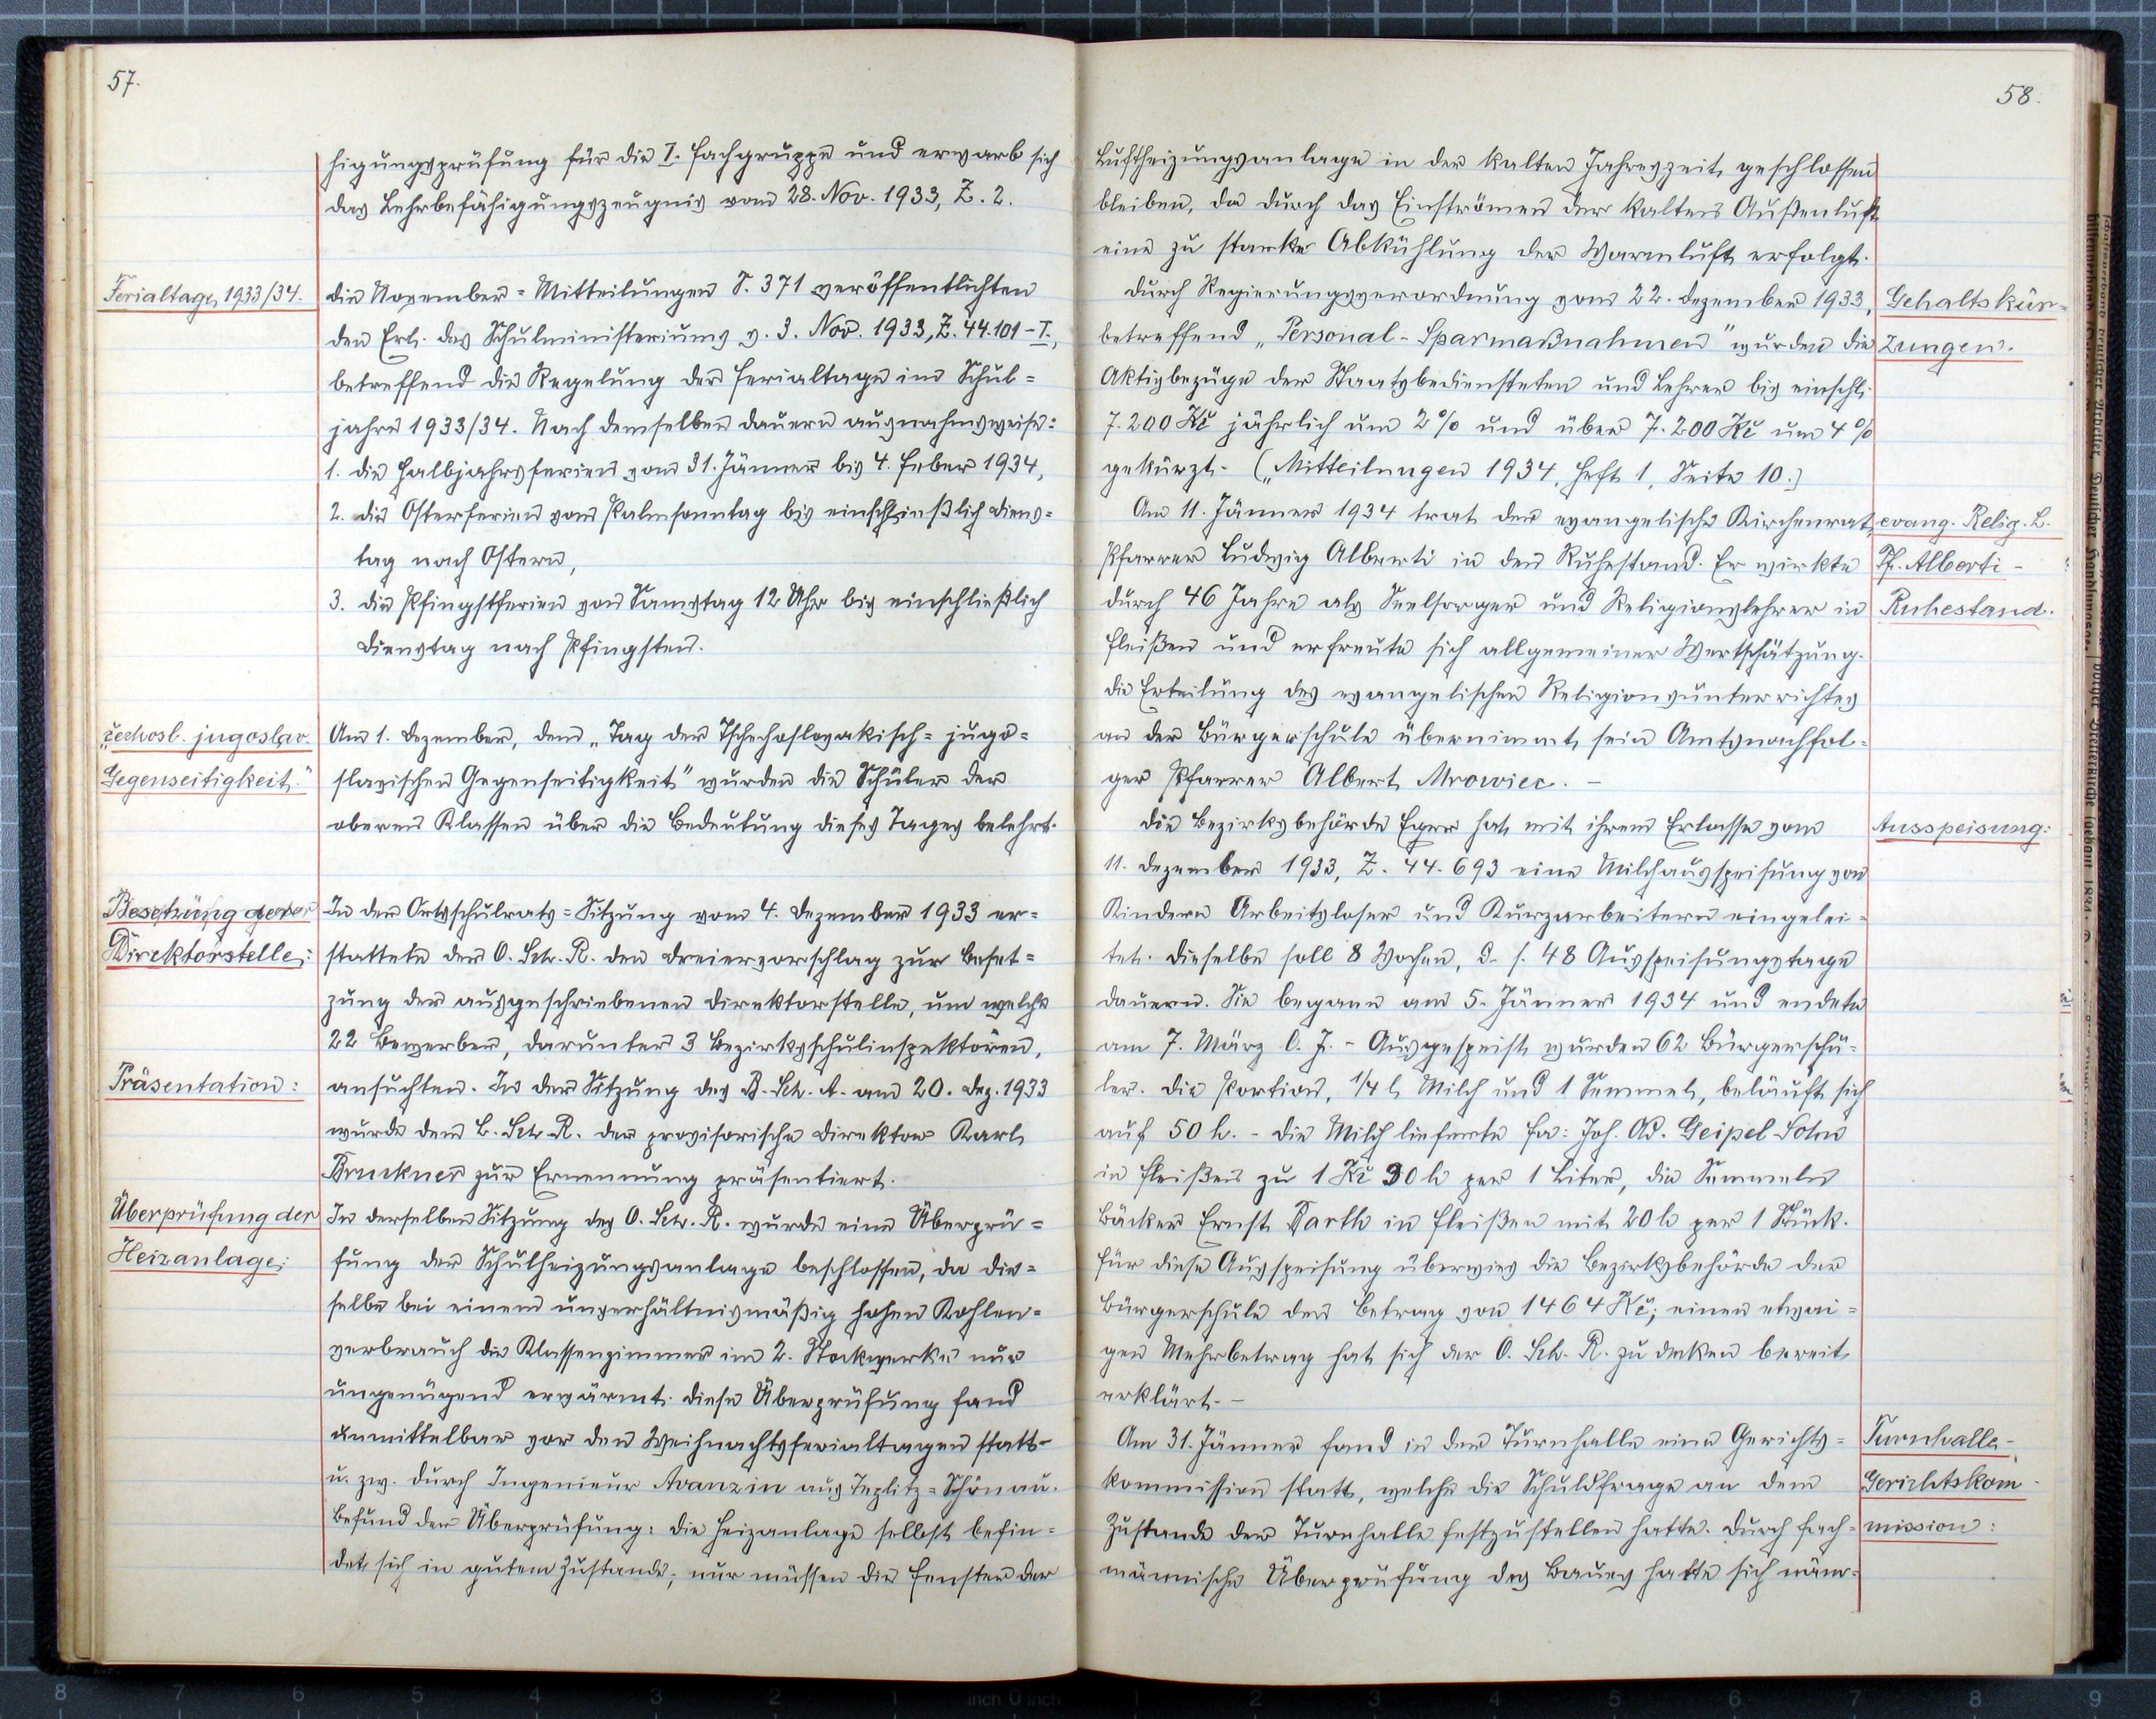 57.
higungsprüfung für die I. Fachgruppe und erwarb sich
das Lehrbefähigungszeugnis vom 28. Nov. 1933, Z. 2.
Ferialtage 1933/34.
Die November-Mitteilungen S. 371 veröffentlichten
den Erl. des Schulministeriums v. 3. Nov. 1933, Z. 44.101-I.,
betreffend die Regelung der Ferialtage im Schul=
jahre 1933/34. Nach demselben dauern ausnahmsweise:
1. die Halbjahrsferien vom 31. Jänner bis 4. Feber 1934,
2. die Osterferien vom Palmsonntag bis einschließlich Diens=
tag nach Ostern,
3. die Pfingstferien von Samstag 12 Uhr bis einschließlich
Dienstag nach Pfingsten.
„čechosl. jugoslav.
Gegenseitigkeit."
Am 1. Dezember, dem „Tag der Tschechoslovakisch=jugo=
slavischen Gegenseitigkeit" wurden die Schüler der
oberen Klassen über die Bedeutung dieses Tages belehrt.
Besetzung der
Direktorstelle:
In der Ortsschulrats=Sitzung vom 4. Dezember 1933 er=
stattete der O. Sch. R. den Dreiervorschlag zur Beset=
zung der ausgeschriebenen Direktorstelle, um welche
22 Bewerber, darunter 3 Bezirksschulinspektoren,
Präsentation:
ansuchten. In der Sitzung des B. Sch. A. am 20. Dez. 1933
wurde dem L. Sch. R. der provisorische Direktor Karl
Bruckner zur Ernennung präsentiert.
Überprüfung der
Heizanlage:
In derselben Sitzung des O. Sch. R. wurde eine Überprü=
fung der Schulheizungsanlage beschlossen, da die=
selbe bei einem unverhältnismäßig hohen Kohlen=
verbrauch die Klassenzimmer im 2. Stockwerke nur
ungenügend erwärmt. Diese Überprüfung fand
unmittelbar vor den Weihnachtsferialtagen statt
u. zw. durch Ingenieur Avanzin aus Teplitz=Schönau.
Befund der Überprüfung: Die Heizanlage selbst befin=
det sich in gutem Zustande; nur müssen die Fenster der
58.
Luftheizungsanlage in der kalten Jahreszeit geschlossen
bleiben, da durch das Einströmen der kalten Außenluft
eine zu starke Abkühlung der Warmluft erfolgt.
Durch Regierungsverordnung vom 22. Dezember 1933,
betreffend „Personal-Sparmaßnahmen" wurden die
Aktivbezüge der Staatsbediensteten und Lehrer bis einschl.
7.200 Kč jährlich um 2% und über 7.200 Kč um 4%
gekürzt. („Mitteilungen 1934, Heft 1, Seite 10.)
Gehaltskür=
zungen.
Am 11. Jänner 1934 trat der evangelische Kirchenrat,
Pfarrer Ludwig Alberti in den Ruhestand. Er wirkte
durch 46 Jahre als Seelsorger und Religionslehrer in
Fleißen und erfreute sich allgemeiner Wertschätzung.
Die Erteilung des evangelischen Religionsunterrichtes
an der Bürgerschule übernimmt sein Amtsnachfol=
ger Pfarrer Albert Mrowiec. –
evang. Relig. L.
Pf. Alberti –
Ruhestand.
Die Bezirksbehörde Eger hat mit ihrem Erlasse vom
11. Dezember 1933, Z. 44.693 eine Milchausspeisung von
Kindern Arbeitsloser und Kurzarbeitern eingelei=
tet. Dieselbe soll 8 Wochen, d. s. 48 Ausspeisungstage
dauern. Sie begann am 5. Jänner 1934 und endete
am 7. März l. J. – Ausgespeist wurden 62 Bürgerschü=
ler. Die Portion, 1/4 l Milch und 1 Semmel, beläuft sich
auf 50 h. – Die Milch lieferte Fa: Joh. Ad. Geipel Sohn
in Fleißen zu 1 Kč 30 h per 1 Liter, die Semmeln
Bäcker Ernst Barth in Fleißen mit 20 h per 1 Stück.
Für diese Ausspeisung überwies die Bezirksbehörde der
Bürgerschule den Betrag von 1464 Kč; einen etwai=
gen Mehrbetrag hat sich der O. Sch. R. zu decken bereit
erklärt. –
Ausspeisung:
Am 31. Jänner fand in der Turnhalle eine Gerichts=
kommission statt, welche die Schuldfrage an dem
Zustande der Turnhalle festzustellen hatte. Durch fach=
männische Überprüfung des Baues hatte sich näm=
Turnhalle-
Gerichtskom-
mission: